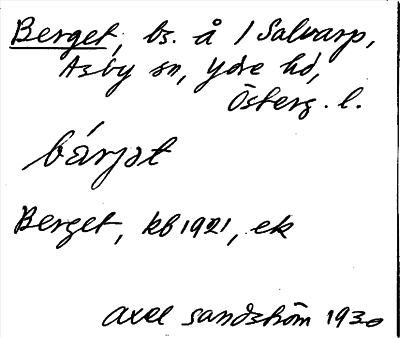 Berget, bs. å 1 Salvarp,
Asby sn, Ydre hd,
Österg. l.
bárjət
Berget, kb 1921, ek
Axel Sandström 1930